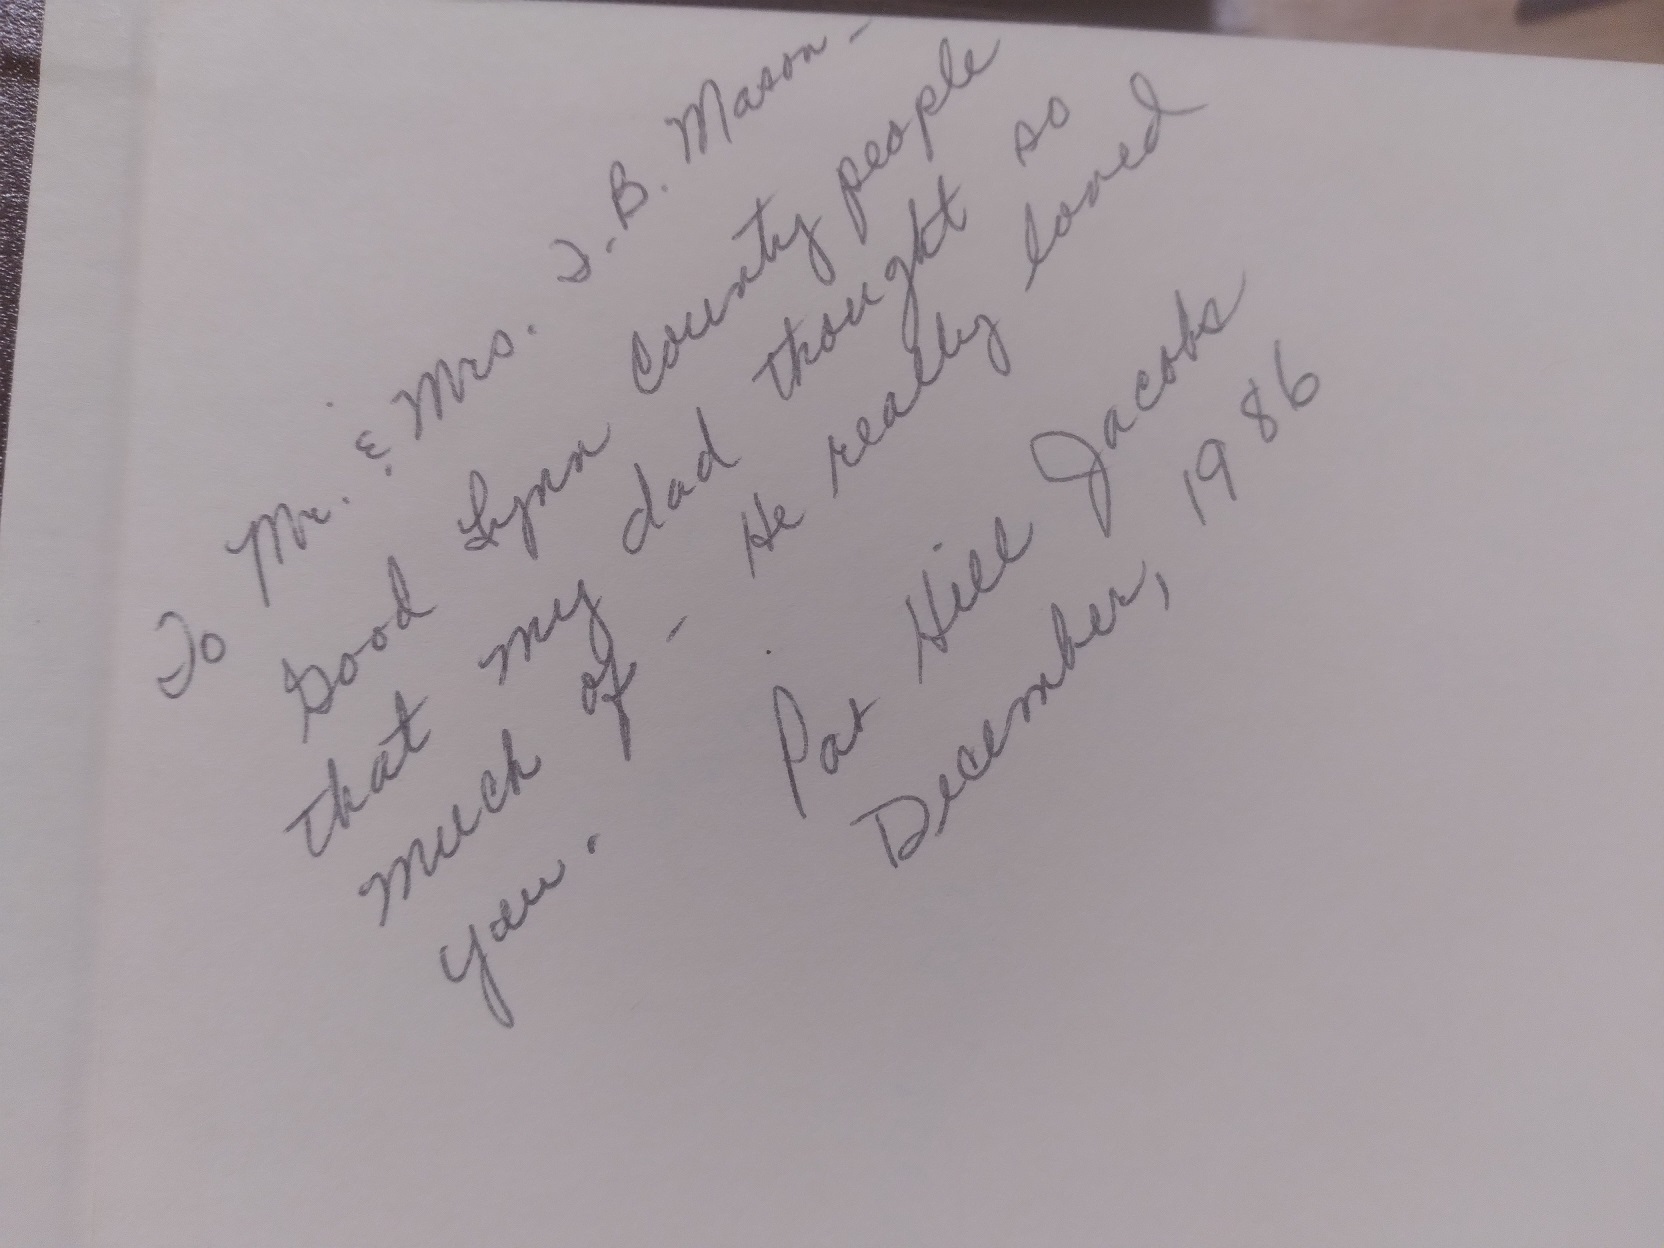 To Mr. & Mrs. J. B. Mason -
Good Lynn County people
that my dad thought so
much of - He really loved
you.
Pat Hill Jacobs
December, 1986